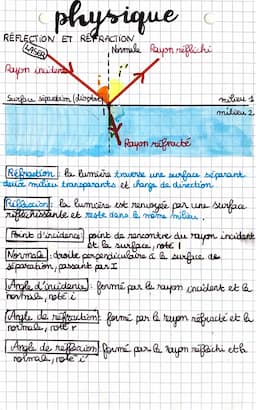 physique
RÉFLECTION ET RÉFRACTION
LASER
Normale Rayon réfléchi
Rayon incident
Surface séparation (dioptre) milieu 1
milieu 2
Rayon réfracté
Réfraction : la lumière traverse une surface séparant
deux milieu transparents et change de direction
Réflexion : la lumière est renvoyée par une surface
réfléchissante et reste dans le même milieu.
Point d'incidence : point de rencontre du rayon incident
et la surface, noté I
Normale : droite perpendiculaire à la surface de
séparation, passant par I
Angle d'incidence : formé par le rayon incident et la
normale, noté i
Angle de réfraction : formé par le rayon réfracté et la
normale, noté r
Angle de réflexion : formé par le rayon réfléchi et la
normale, noté i'